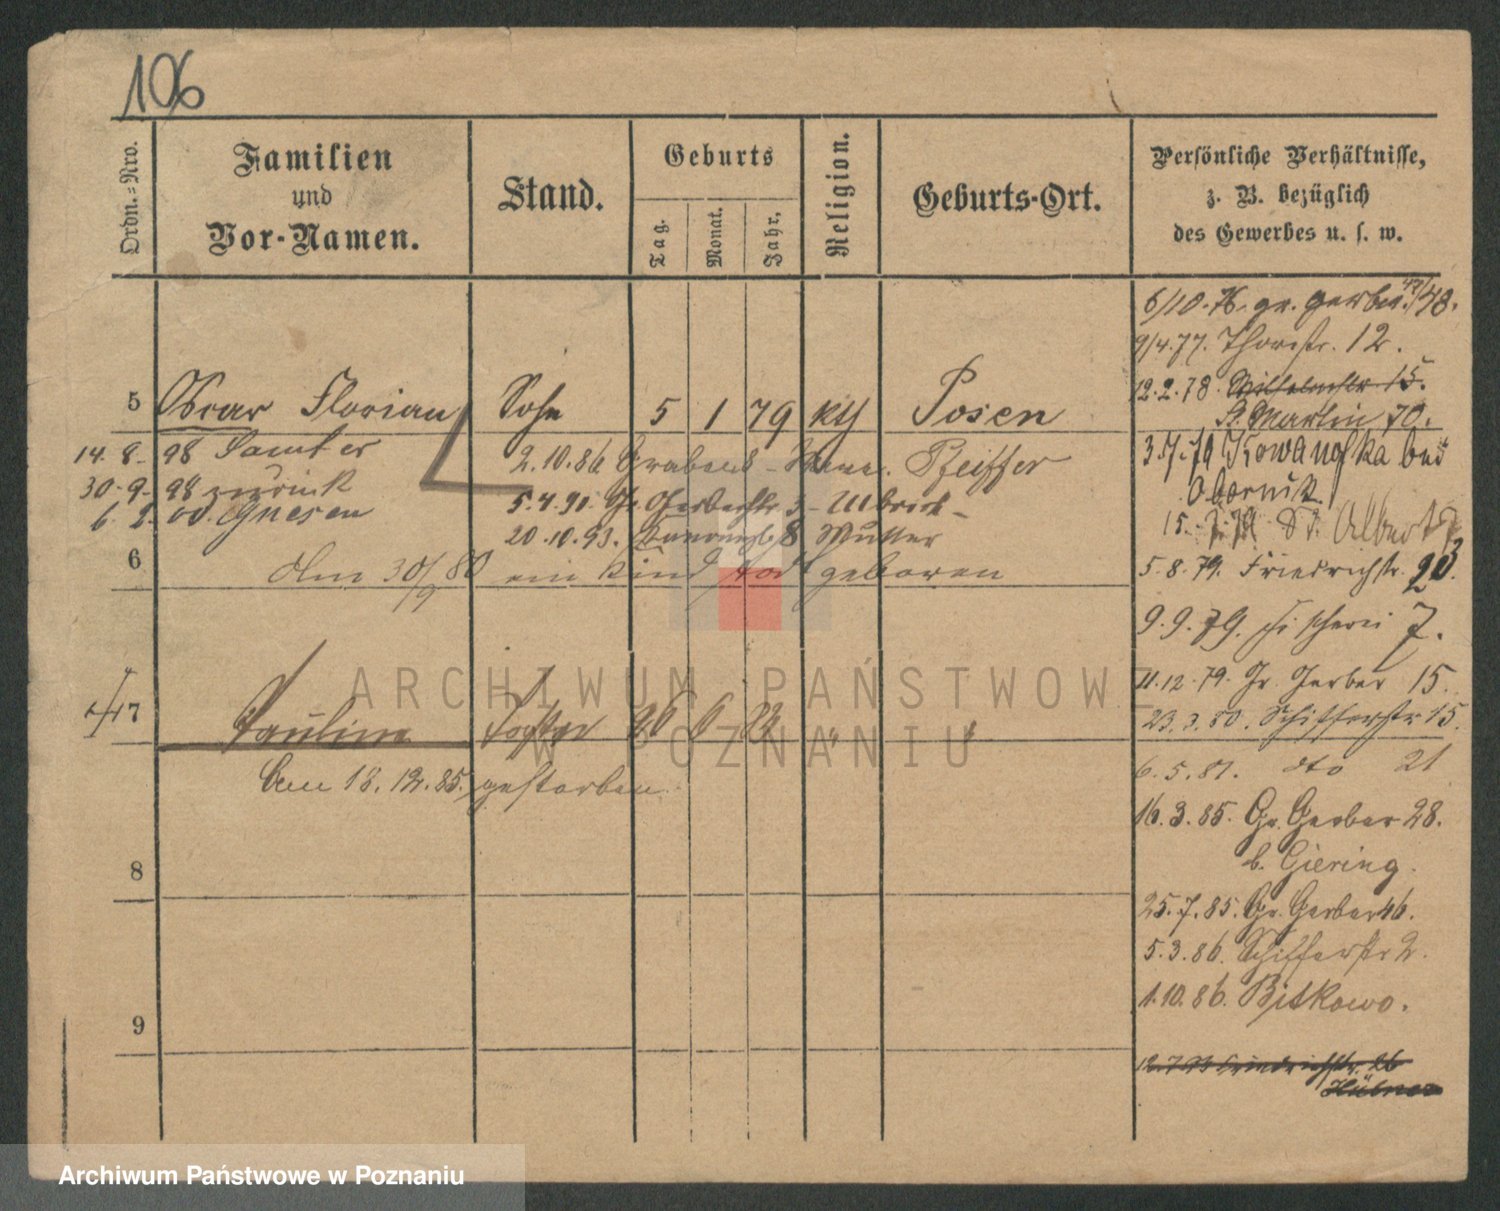 106
Ordn.-Nro.
Familien
und
Vor-Namen.
Stand.
Geburts
Tag.
Monat.
Jahr.
Religion.
Geburts-Ort.
Persönliche Verhältnisse,
z. B. bezüglich
des Gewerbes u. s. w.
6/10.76. gr. Gerber. 47/48.
9/4.77. Thorstr. 12.
12.2.78. Wilhelmstr. 15.
St. Martin 70.
5 Oscar Florian Sohn 5 1 79 kth Posen
14.8. 98 Samter
30.9. 98 zurück
6.2.00. Gnesen
2.10.86 Graben 8 Pfeiffer
5.4.90. Gr. Gerberstr. 3 - Ulbrich -
20.10.93. 8 Mutter
3.7.79 Kowanofka bei
Obornik
15.7.79 St. Adalbert
5.8.79. Friedrichstr. 23.
6 Am 30/9 80 ein Kind todt geboren
9.9.79. Fischerei 7.
11.12.79. Gr. Gerber 15.
23.3.80. Schifferstr 15.
7 Pauline Tochter 26 6 82 " "
6.5.81. dto 21
Am 18.12.85. gestorben.
16.3.85. Gr. Gerber 28.
b. Giering.
8
25.7.85. Gr. Gerber 46.
5.3.86. Schifferstr 2.
1.10.86. Bitkowo.
9
Friedrichstr. 26
Hübner
ARCHIWUM PAŃSTWOWE
W POZNANIU
Archiwum Państwowe w Poznaniu